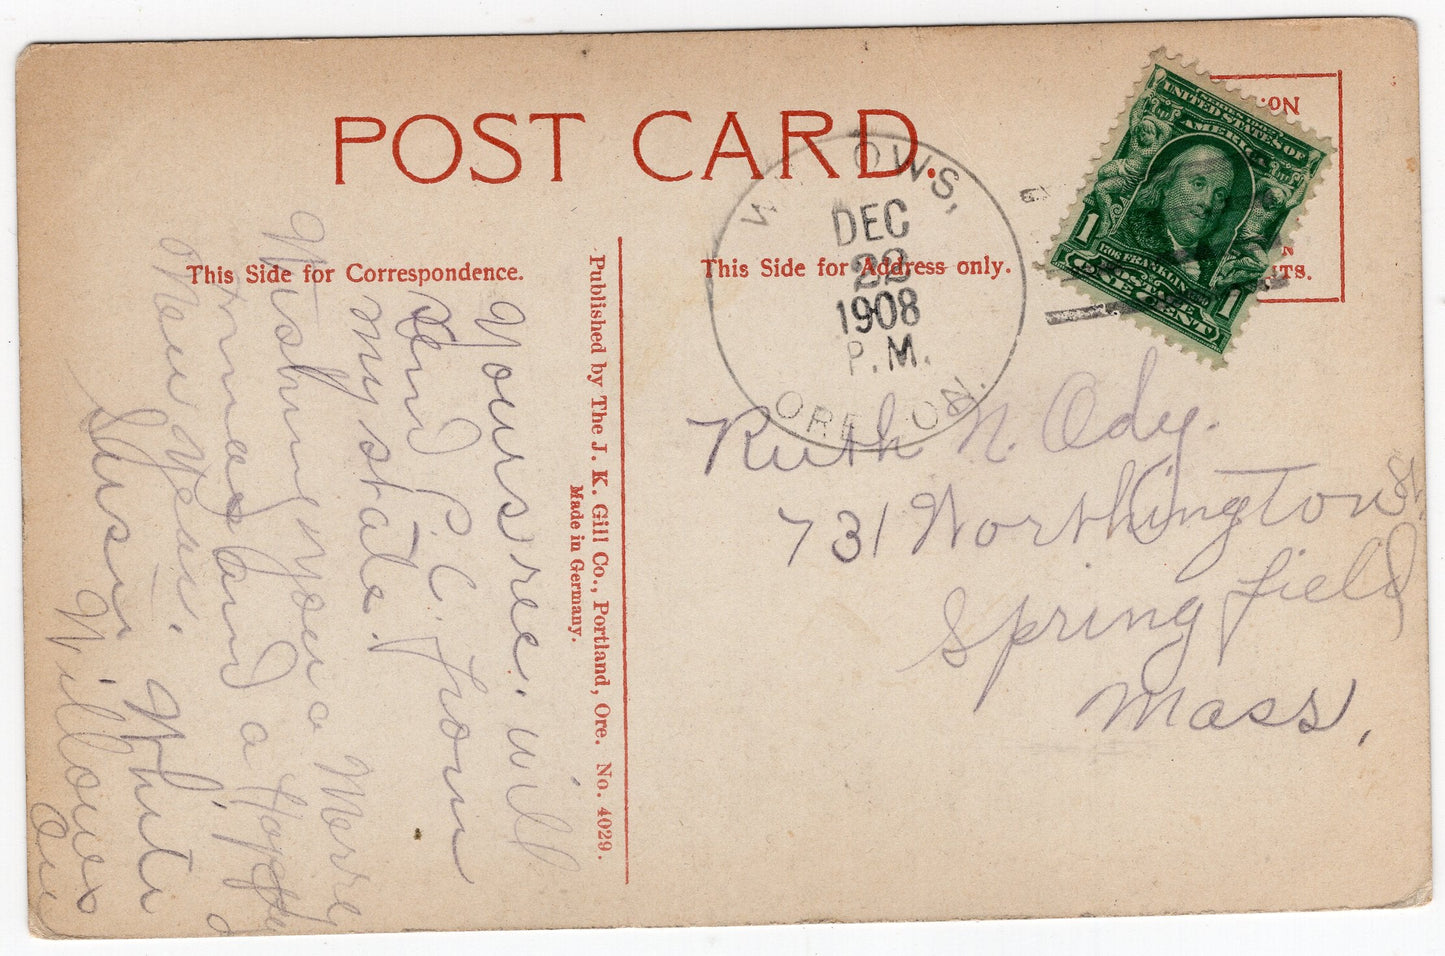 POST CARD.
This Side for Correspondence.
This Side for Address only.
Published by The J. K. Gill Co., Portland, Ore. No. 4029.
Made in Germany.
OWS,
DEC
22
1908
P. M.
ORE ON.
UNITED STATES OF
AMERICA
1 1
FRANKLIN
ONE CENT
Ruth N. Ody.
731 Worthington St.
Springfield
Mass,
Yours rec. will
send P.C. from
my state.
Wishing you a Merry
Xmas and a Happy
New Year.
White
Willows
Ore